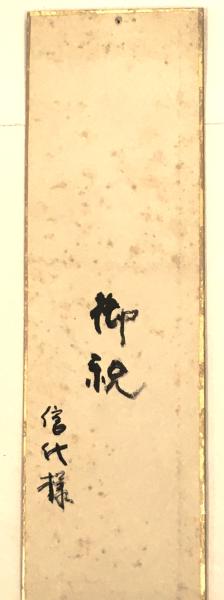 御祝
信代様